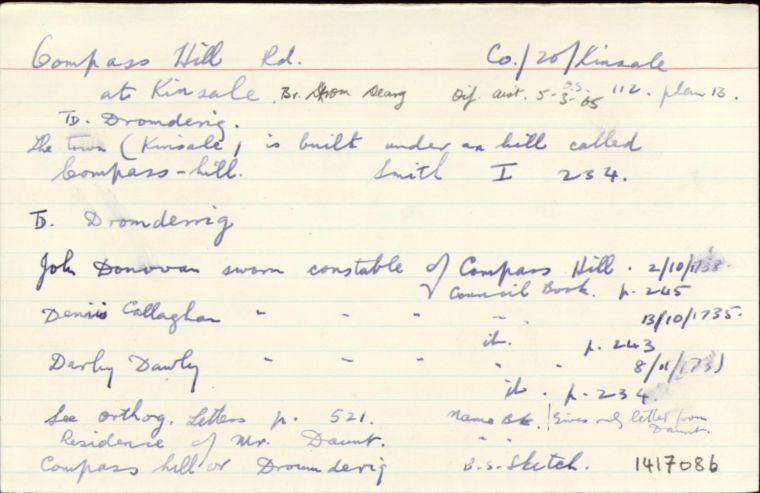 Compass Hill Rd. Co./20/Kinsale
at Kinsale. Br. Drom Dearg Oif. aist. 5-3-65 O.S. 112. plan 13.
TD. Dromderrig.
The town (Kinsale) is built under an hill called
Compass-hill. Smith I 234.
TD. Dromderrig
John Donovan sworn constable of Compass Hill. 2/10/1738.
Council Book. p. 245
Dennis Callaghan " " " " 13/10/1735.
ib. p. 243
Darby Dawly " " " " " 8/11/1731
ib. p. 234.
See orthog. Letters p. 521. Name Bk. Gives only letter from Daunt.
Residence of Mr. Daunt. " "
Compass hill or Droumderig B.S. Sketch. 1417086